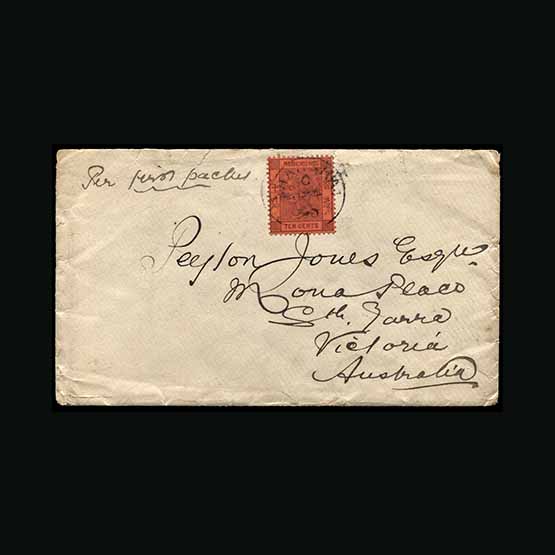 Per first packet
HONG KONG
TEN CENTS
Peyton Jones Esqre
Mona Place
Sth. Yarra
Victoria
Australia